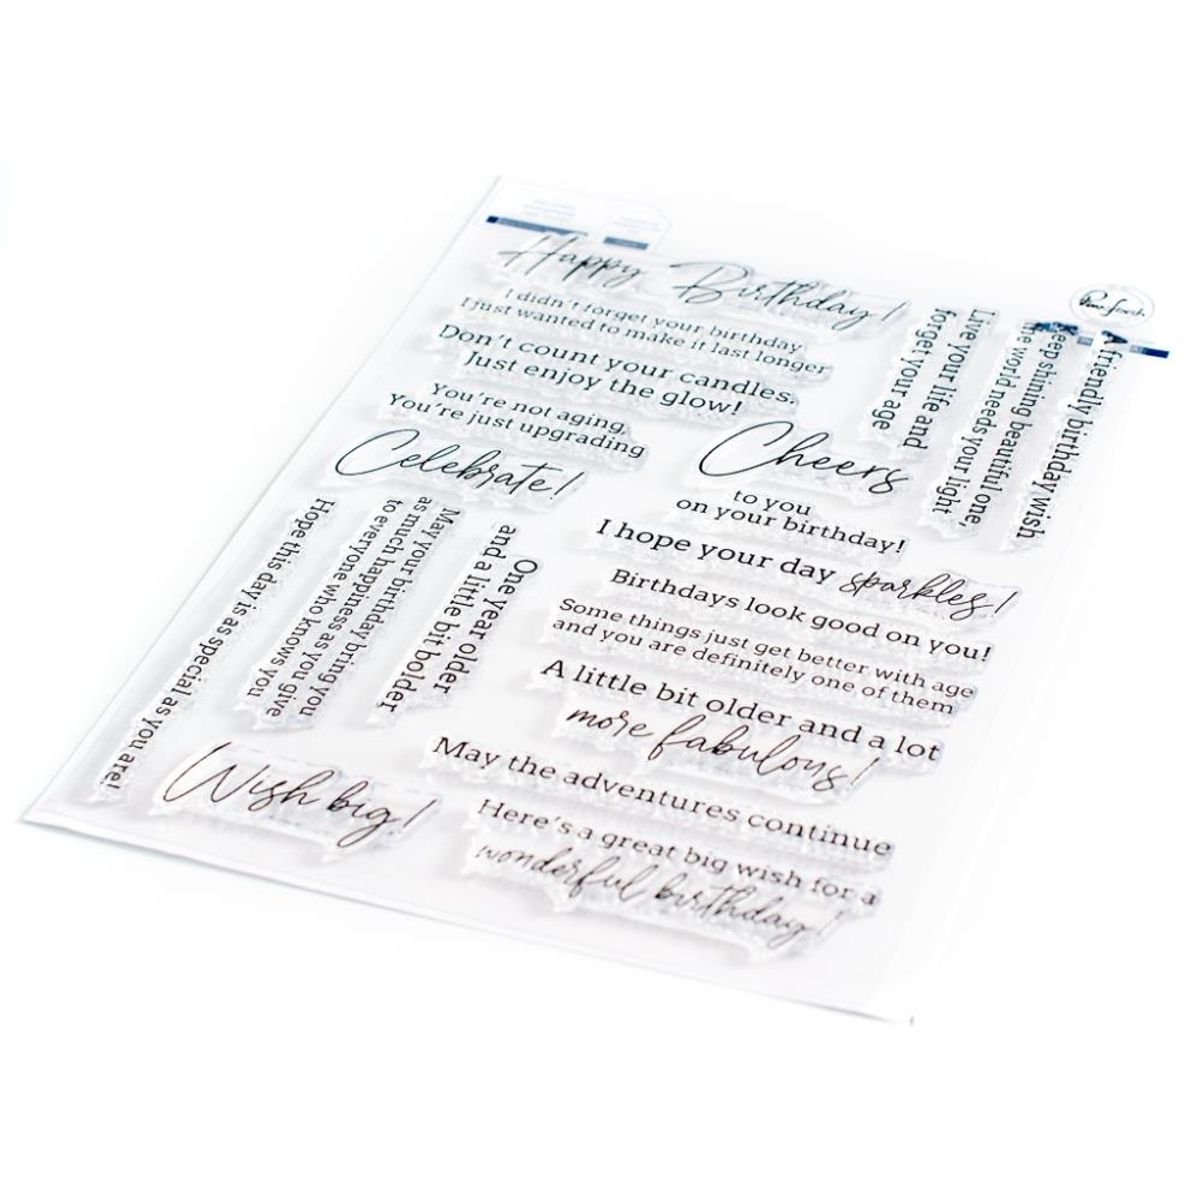 Happy Birthday!
I didn't forget your birthday
I just wanted to make it last longer
Don't count your candles.
Just enjoy the glow!
You're not aging.
You're just upgrading
Celebrate!
Live your life and
forget your age
Keep shining beautiful one,
the world needs your light
A friendly birthday wish
Cheers
to you
on your birthday!
I hope your day sparkles!
Birthdays look good on you!
Some things just get better with age
and you are definitely one of them
A little bit older and a lot
more fabulous!
May the adventures continue
Here's a great big wish for a
wonderful birthday!
One year older
and a little bit bolder
May your birthday bring you
as much happiness as you give
to everyone who knows you
Hope this day is as special as you are!
Wish big!